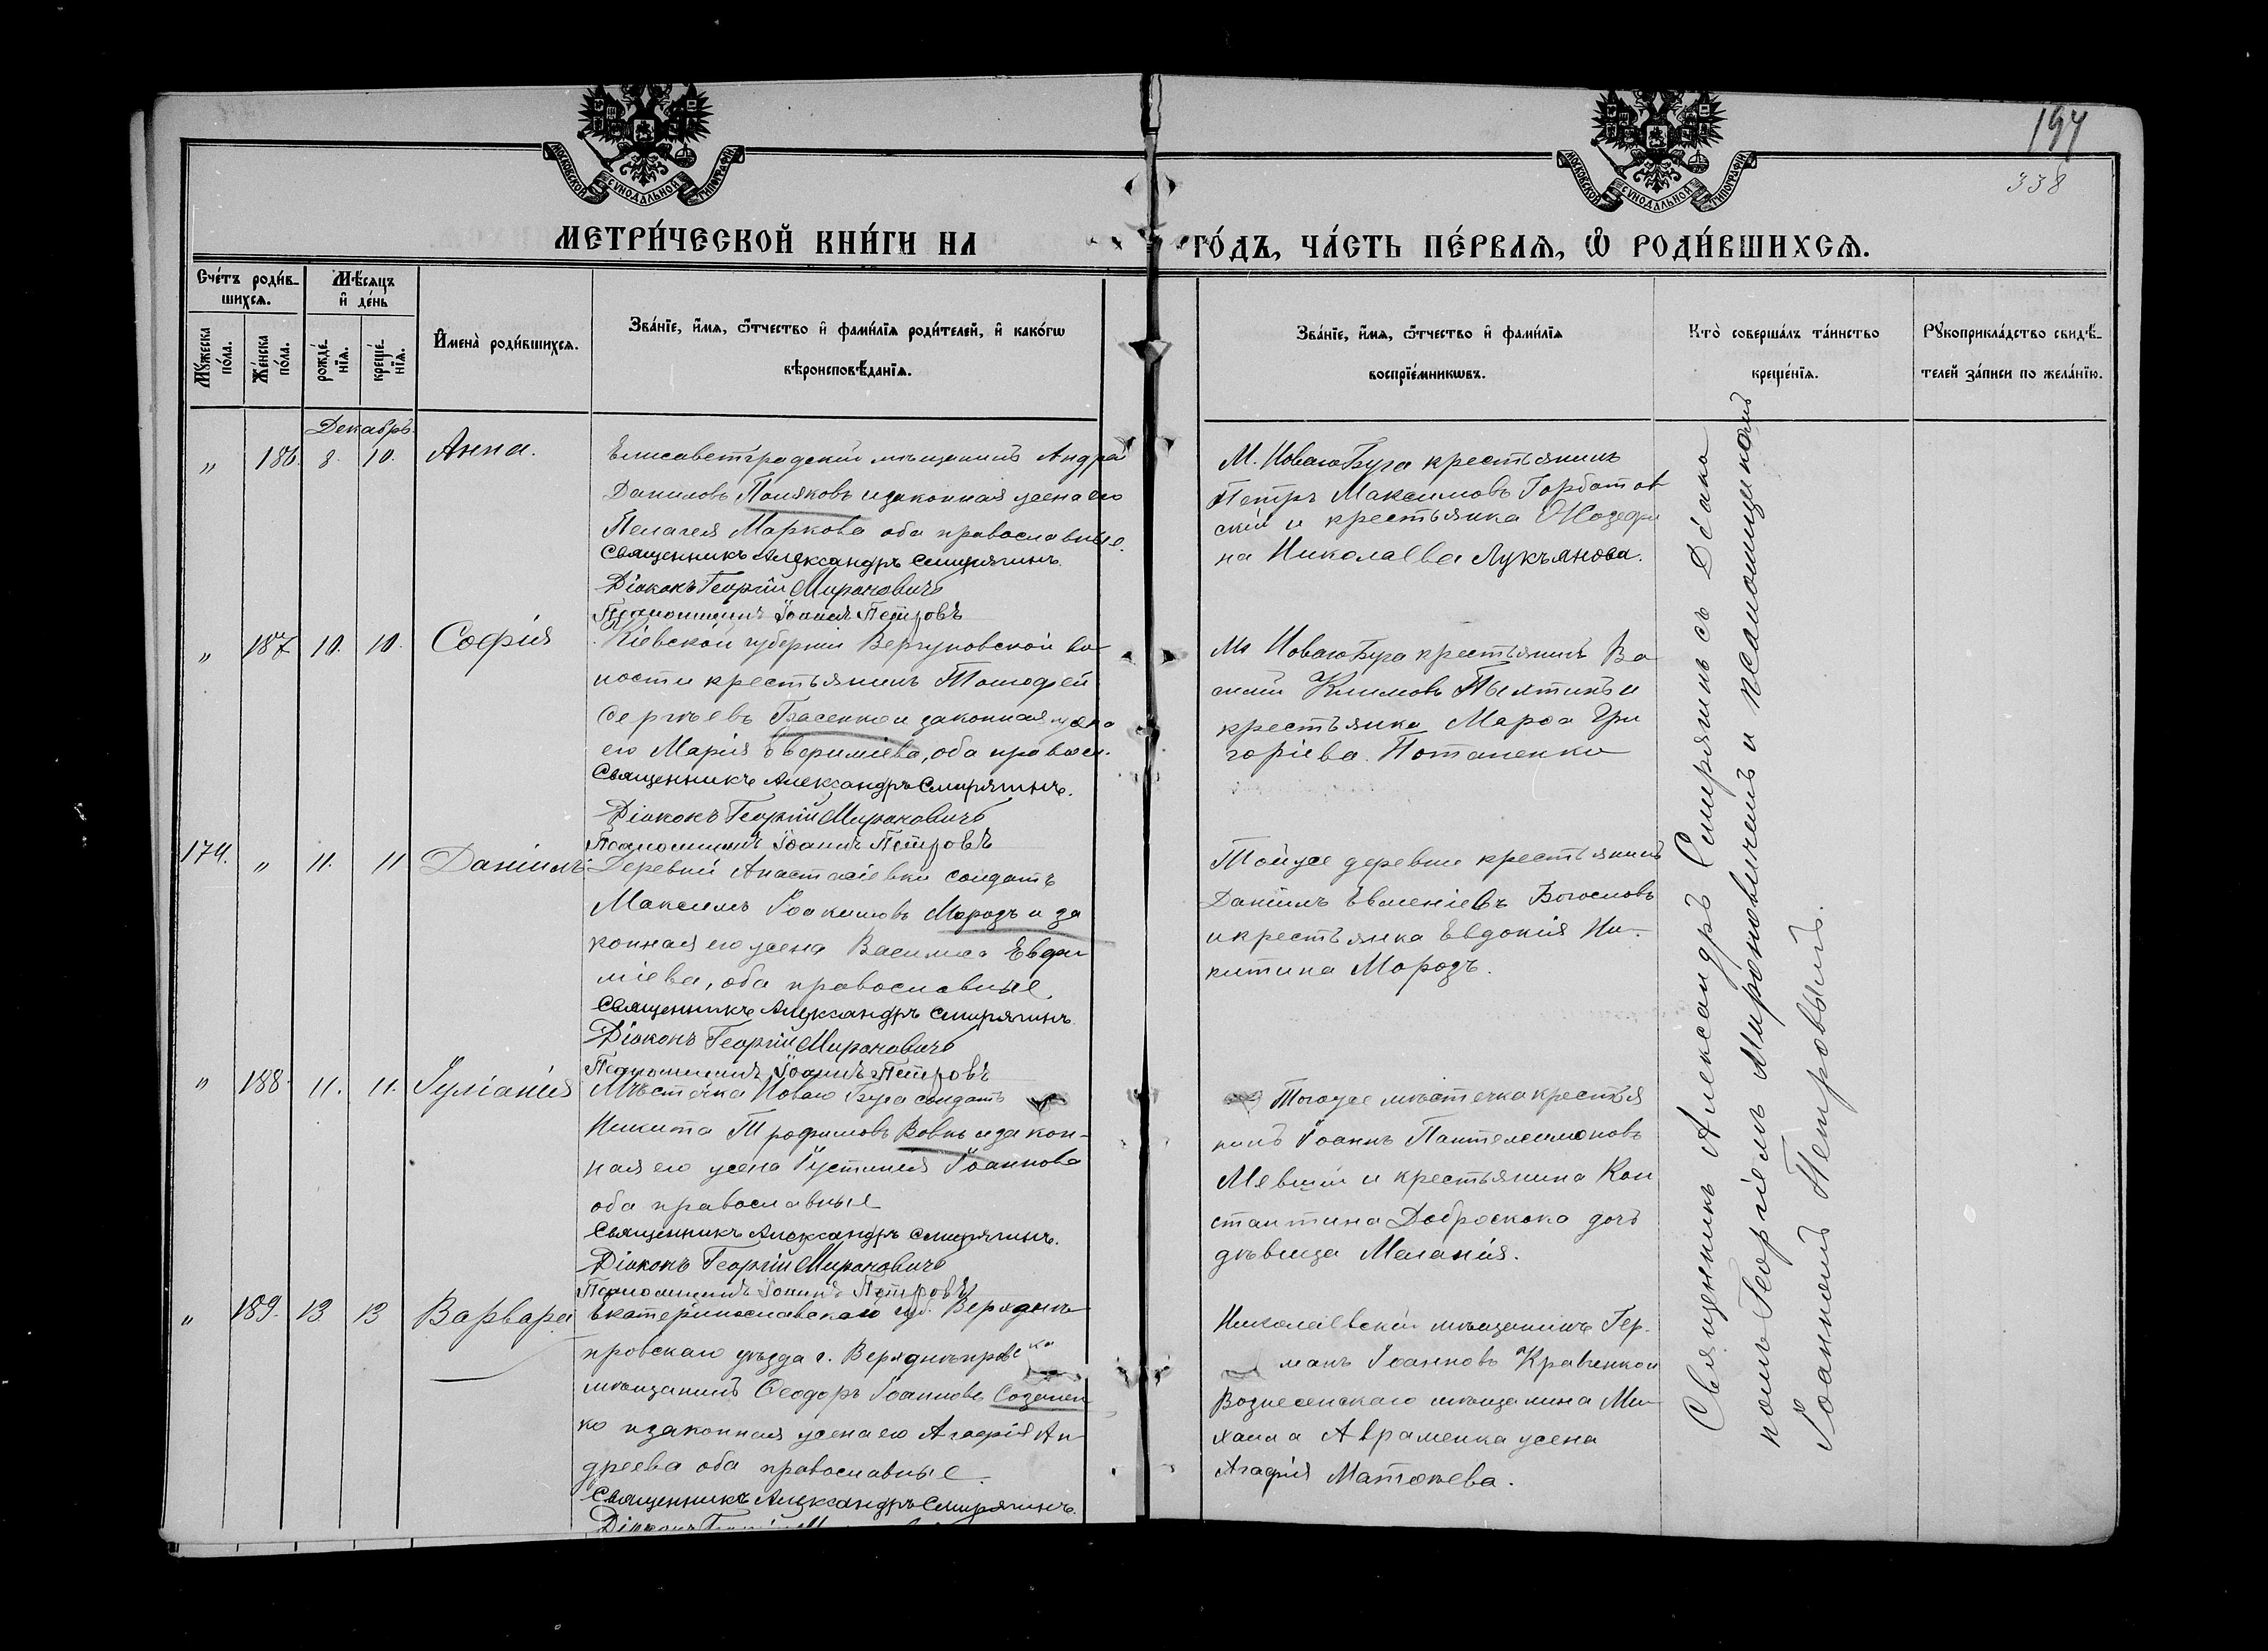 194
338
МОСКОВСКОЙ СѴНОДАЛЬНОЙ ТИПОГРАФІИ
МОСКОВСКОЙ СѴНОДАЛЬНОЙ ТИПОГРАФІИ
МЕТРИ́ЧЕСКОЙ КНИ́ГИ НА ГО́ДЪ, ЧА́СТЬ ПЕ́РВАѦ, Ѽ РОДИ́ВШИХСѦ.
Сче́тъ роди́в-
шихсѧ.
Мꙋ́жеска
по́ла.
Же́нска
по́ла.
Мѣ́сѧцъ
и҆ де́нь
рожде́-
нїѧ.
креще́-
нїѧ.
И҆мена̀ роди́вшихсѧ.
Зва́нїе, и҆́мѧ, ѻ҆́тчество и҆ фами́лїѧ роди́телей, и҆ како́гѡ
вѣроисповѣ́данїѧ.
Зва́нїе, и҆́мѧ, ѻ҆́тчество и҆ фами́лїѧ
воспрїе́мникѡвъ.
Кто̀ соверша́лъ та́инство
креще́нїѧ.
Рꙋкоприкла́дство свидѣ́-
телей за́писи по жела́нїю.
Декабрь.
" 186. 8. 10. Анна.
Елисаветградскій мѣщанинъ Андрей
Даниловъ Поляковъ и законная жена его
Пелагея Маркова оба православные.
Священникъ Александръ Смирягинъ.
Діаконъ Георгій Мироновичъ
Псаломщикъ Іоаннъ Петровъ
М. Новаго Буга крестьянинъ
Петръ Максимовъ Горбатов
скій и крестьянка Жозефи
на Николаева Лукъянова.
" 187 10. 10. Софія
Кіевской губерніи Вергуновской во
лости крестьянинъ Тимофей
Сергѣевъ и законная жена
его Марія оба правосл.
Священникъ Александръ Смирягинъ.
Діаконъ Георгій Мироновичъ
Псаломщикъ Іоаннъ Петровъ
М. Новаго Буга крестьянинъ Ва
силій Климовъ и
крестьянка Марфа Гри
горіева Потапенко
174. " 11. 11 Даніилъ
Деревни Анастасіевки солдатъ
Максимъ Іоакимовъ Морозъ и за
конная его жена Василиса Евфи
міева, оба православные.
Священникъ Александръ Смирягинъ
Діаконъ Георгій Мироновичъ
Псаломщикъ Іоаннъ Петровъ
Той же деревни крестьянинъ
Даніилъ Евменіевъ Богословъ
и крестьянка Евдокія Ни-
китина Морозъ.
" 188 11. 11. Іуліанія
Мѣстечка Новаго Буга солдатъ
Никита Трофимовъ Вовкъ и закон-
ная его жена Іустинія Іоаннова
оба православные
Священникъ Александръ Смирягинъ.
Діаконъ Георгій Мироновичъ
Псаломщикъ Іоаннъ Петровъ
Того же мѣстечка крестья
нинъ Іоаннъ Пантелеимоновъ
и крестьянина Кон
стантина Доброскока дочь
дѣвица Меланія.
" 189. 13 13 Варвара
Екатеринославской губ. Верхднѣ
провскаго уѣзда г. Верхднѣпровска
мѣщанинъ Ѳеодоръ Іоанновъ
ко и законная жена его Агафія Ан
дреева оба православные.
Священникъ Александръ Смирягинъ.
Николаевскій мѣщанинъ Гер-
манъ Іоанновъ Кравченко и
Вознесенскаго мѣщанина Ми-
хаила Авраменка жена
Агафія Матѳеева.
Священникъ Александръ Смирягинъ съ Діако
номъ Георгіемъ Мироновичемъ и псаломщикомъ
Іоанномъ Петровымъ.